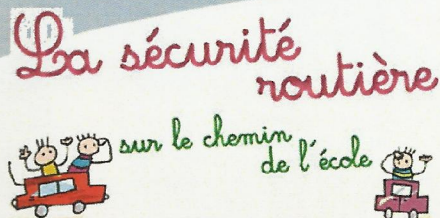 La sécurité
routière
sur le chemin
de l'école